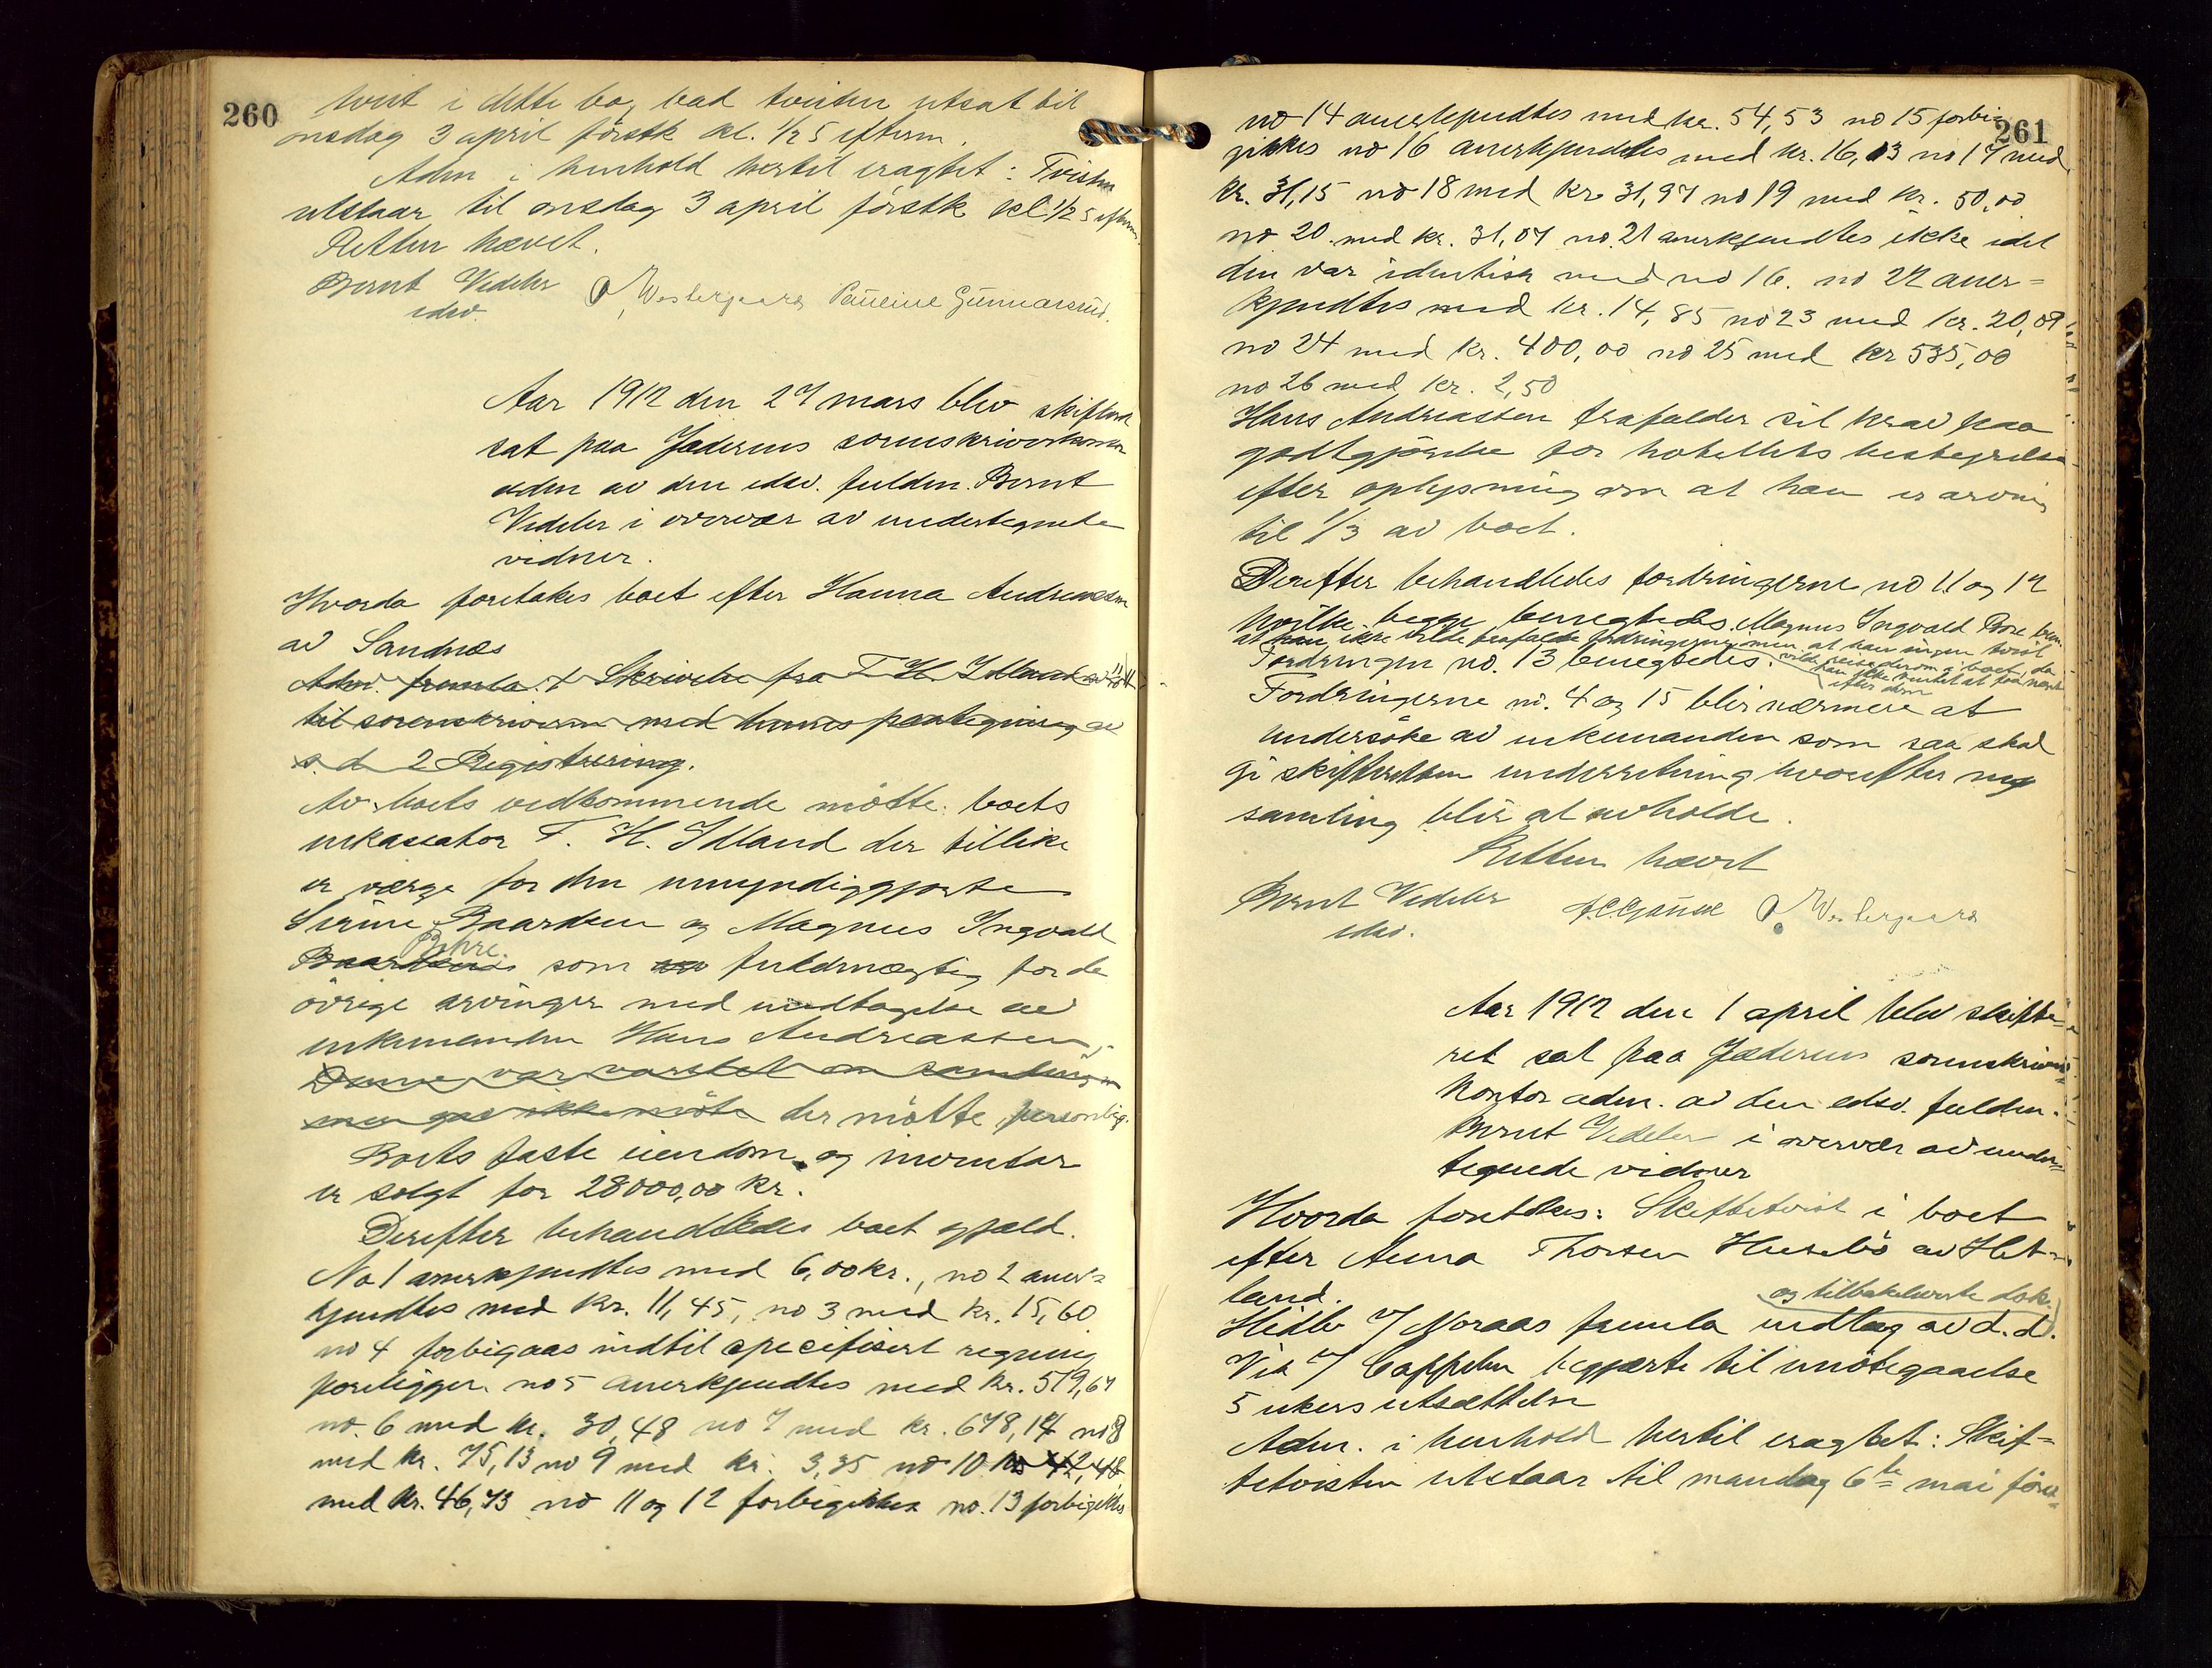 260
tvist i dette bo, bad tvisten utsat til
onsdag 3 april førstk kl. 1/2 5 efterm.
Adm i henhold hertil eragtet: Tvisten
utstaar til onsdag 3 april førstk kl 1/2 5 efterm.
Retten hævet.
Bernt Vedeler
edsv.
Westergaard Pauline Gunnarsrud.
Aar 1912 den 27 mars blev skifteret
sat paa Jæderens sorenskriverkontor
adm av den edsv. fuldm. Bernt
Vedeler i overvær av undertegnede
vidner.
Hvorda foretokes boet efter Hanna Andreassen
av Sandnæs
Adm. fremla: 1 Skrivelse fra T. H. Idland av 11/11
til sorenskriveren med hannes paategning av
s. d 2 Registrering.
Av boets vedkommende møtte: boets
inkassator T. H. Idland der tillike
er verge for den umyndiggjorte
Serine Baardsen og Magnus Ingvald
Bohre.
Baardsen som fuldmægtig for de
övrige arvinger med undtagelse av
enkemanden Hans Andreassen,
Denne var varslet om samlingen
men gad ikke møte der møtte personlig.
Boets faste eiendom og inventar
er solgt for 28000,00 kr.
Derefter behandledes boet gjæld.
No 1 anerkjendtes med 6,00 kr., no 2 aner=
kjendtes med kr. 11,45, no 3 med kr. 15,60
no 4 forbigaas indtil specifisert regning
foreligger. no 5 anerkjendtes med kr. 519,67
no. 6 med kr. 30,48 no 7 med kr. 678,14 no 8
med kr. 75,13 no 9 med kr. 3,35 no 10 kr 42,48
med kr. 46,73 no 11 og 12 forbigikkes no. 13 forbigikkes
261
no 14 anerkjendtes med kr. 54,53 no 15 forbi
gikkes no 16 anerkjendtes med kr. 16,13 no 17 med
kr. 31,15 no 18 med kr 31,97 no 19 med kr. 50,00
no 20. med kr. 31,07 no. 21 anerkjendtes ikke idet
den var identisk med no 16. no 22 aner=
kjendtes med kr. 14,85 no 23 med kr. 20,09
no 24 med kr. 400,00 no 25 med kr 535,00
no 26 med kr. 2,50
Hans Andreassen frafalder sit krav paa
godtgjørelse for hotellets bestyrelse
efter oplysning om at han er arving
til 1/3 av boet.
Derefter behandledes fordringerne no 11 og 12
hvilke begge benegtedes. Magnus Ingvald Bore
at han ikke vilde frafalde fordringerne men at han ingen tvist
vilde reise derom i boet, da
han ikke ventet at faa noget
efter dem
Fordringen no. 13 benegtedes.
Fordringerne no. 4 og 15 blir nærmere at
undersöke av enkemanden som saa skal
gi skifteretten underretning hvorefter ny
samling blir at avholde.
Retten hævet
Bernt Vedeler
edsv.
Westergaard
Aar 1912 den 1 april blev skifte-
ret sat paa Jæderens sorenskriver
kontor adm. av den edsv. fuldm.
Bernt Vedeler i overvær av under=
tegnede vidner
Hvorda foretokes: Skiftetvist i boet
efter Anna Thorsen Husebö av Het-
land.
og tilbakeleverte dok.
Hidlev v/ Noraas fremla indlæg av d. d.
Vik v/ Cappelen begjærte til imötegaaelse
5 ukers utsættelse
Adm. i henhold hertil eragtet: Skif=
tetvisten utstaar til mandag 6te mai först=